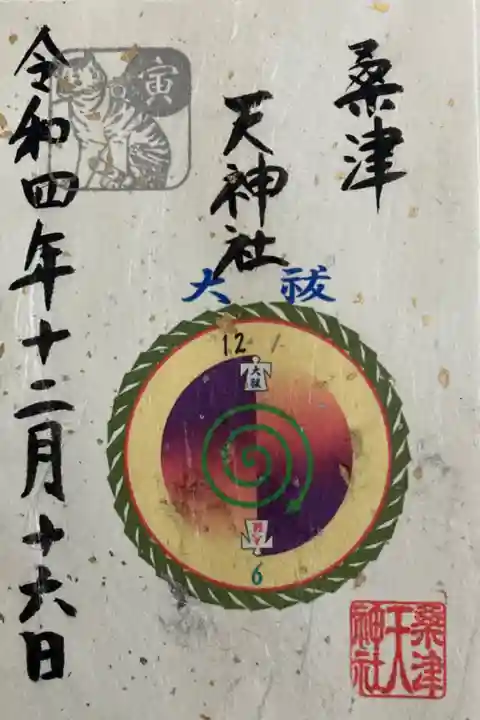 桑津
天神社
令和四年十二月十六日
寅
大祓
12
大祓
6
桑津
天神社